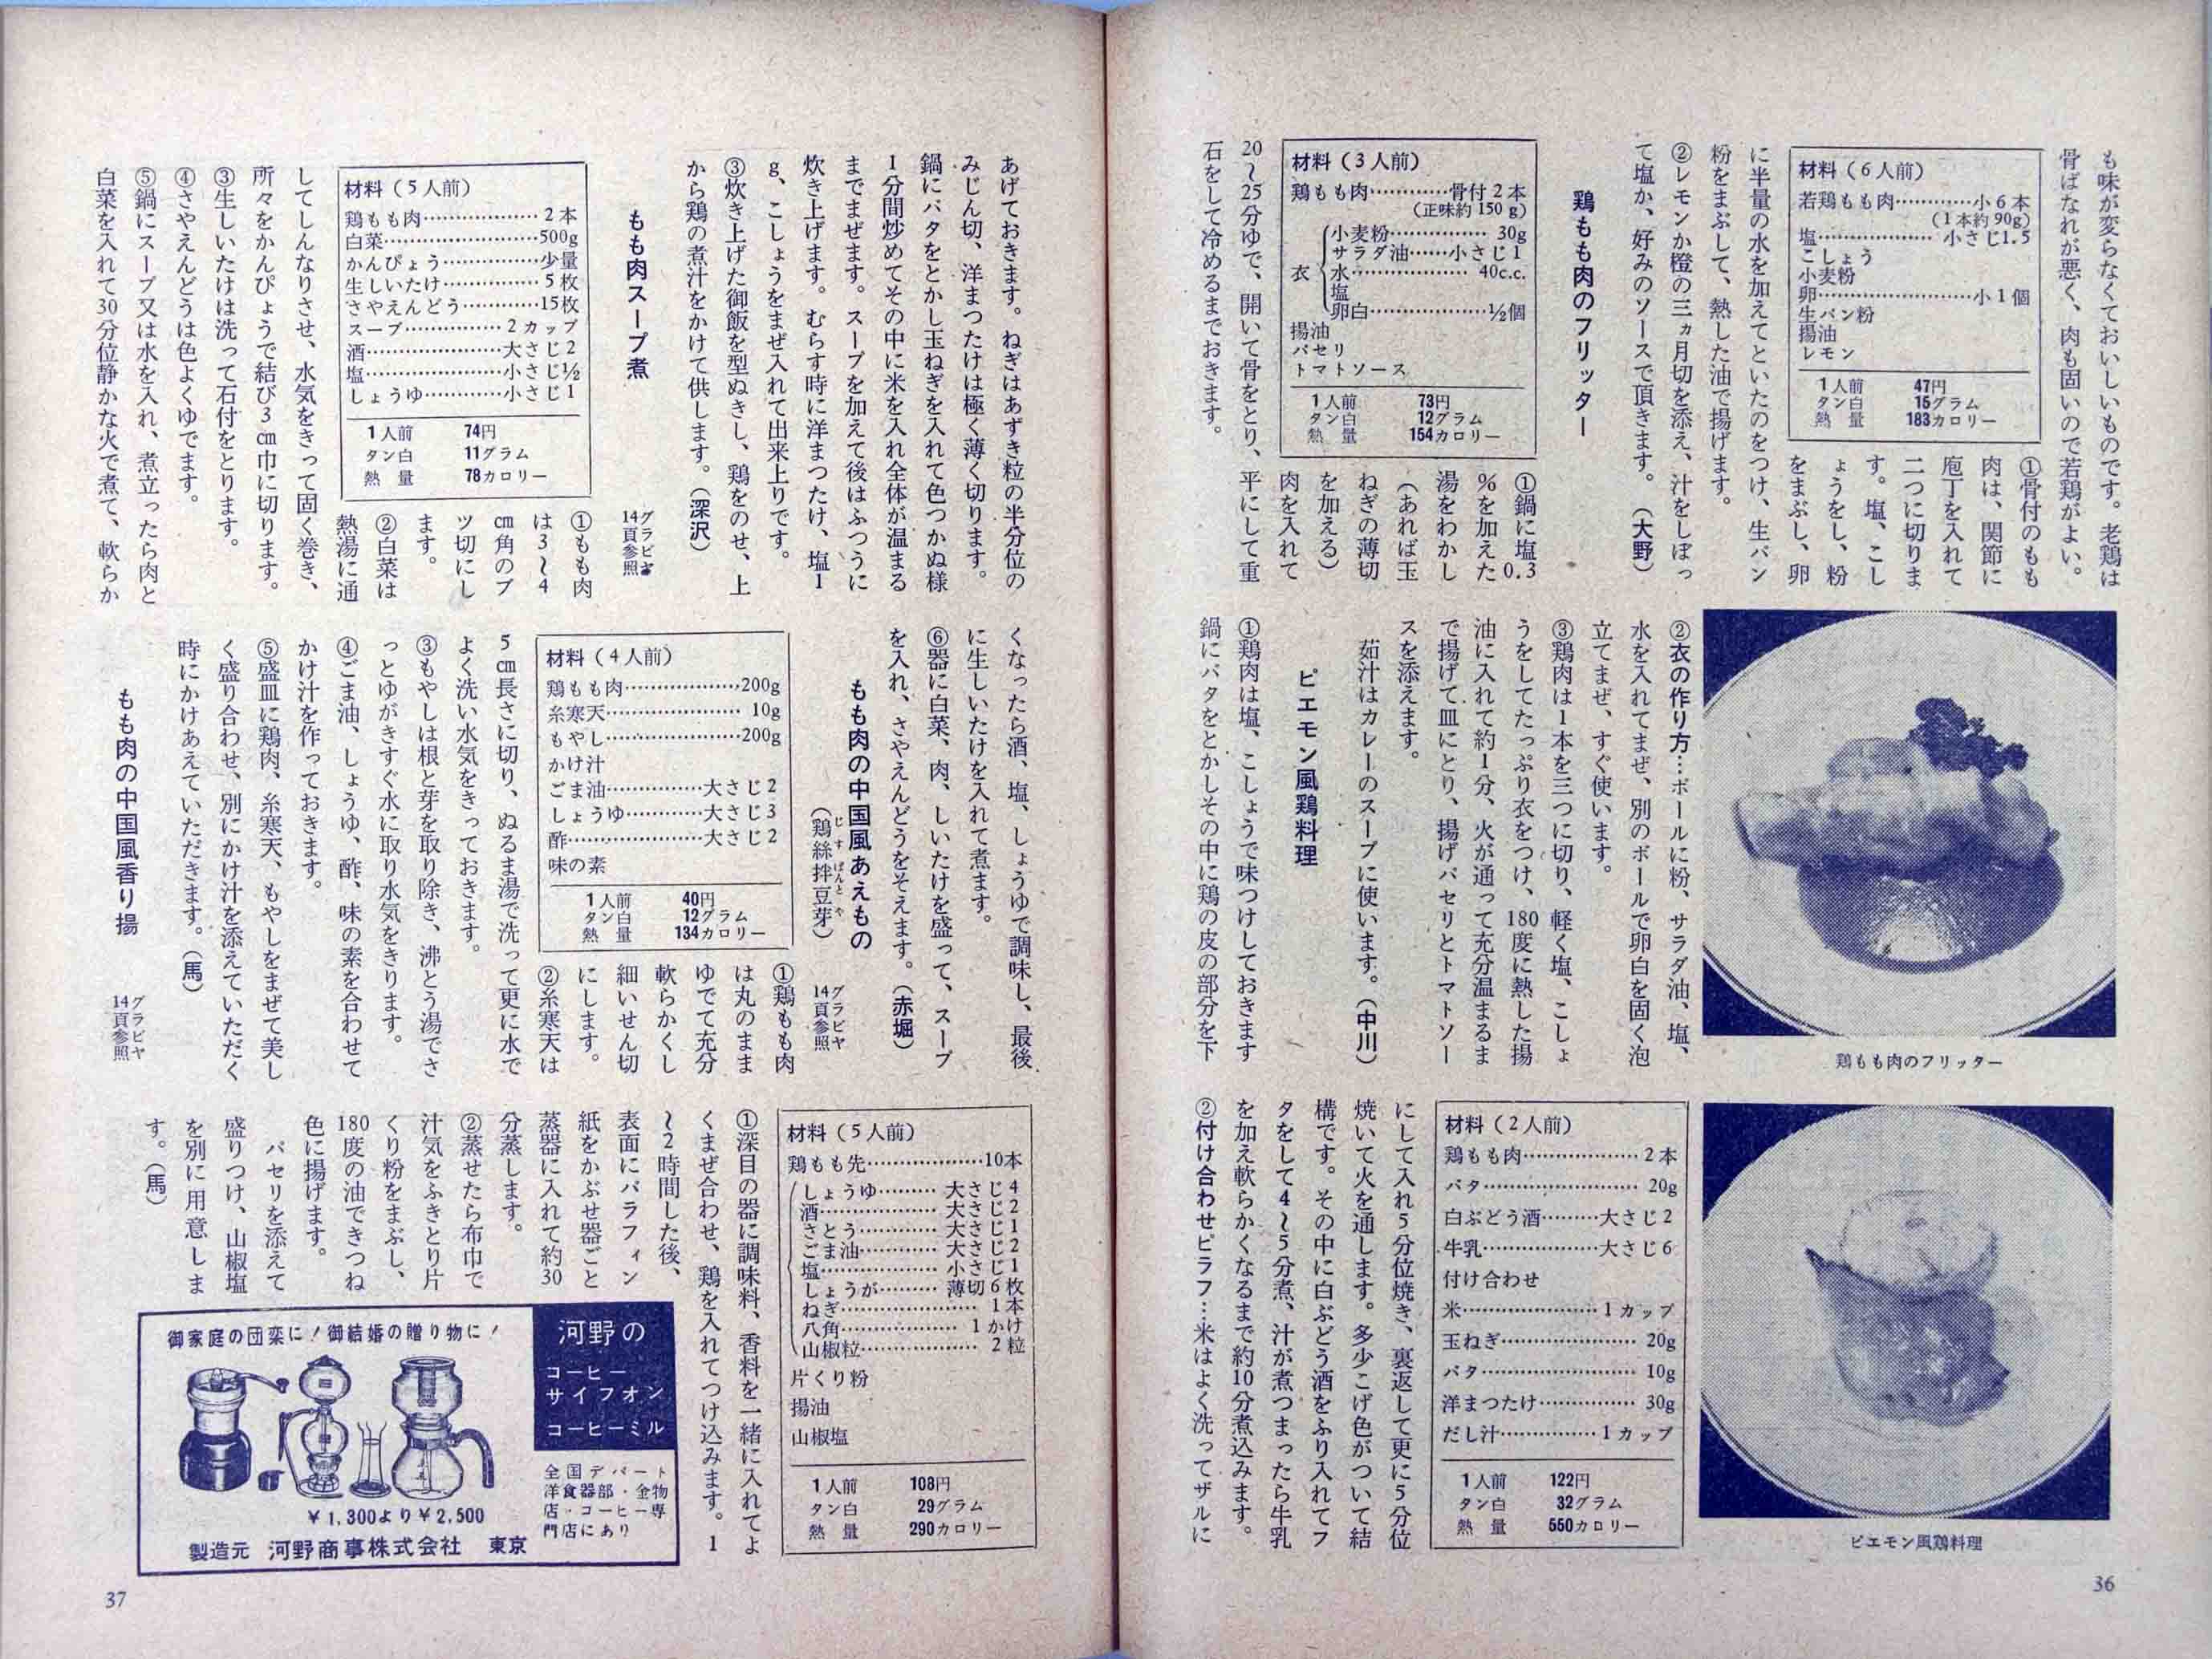 も味が変らなくておいしいものです。老鶏は
骨ばなれが悪く、肉も固いので若鶏がよい。
材料(6人前)
若鶏もも肉…………小6本
(1本約90g)
塩………………小さじ1.5
こしょう
小麦粉
卵……………………小1個
生パン粉
揚油
レモン
1人前 47円
タン白 15グラム
熱量 183カロリー
①骨付のもも
肉は、関節に
庖丁を入れて
二つに切りま
す。塩、こし
ょうをし、粉
をまぶし、卵
に半量の水を加えてといたのをつけ、生パン
粉をまぶして、熱した油で揚げます。
②レモンか橙の三ヵ月切を添え、汁をしぼっ
て塩か、好みのソースで頂きます。(大野)
鶏もも肉のフリッター
材料(3人前)
鶏もも肉…………骨付2本
(正味約150g)
衣
小麦粉……………30g
サラダ油……小さじ1
水………………40c.c.
塩
卵白………………½個
揚油
パセリ
トマトソース
1人前 73円
タン白 12グラム
熱量 154カロリー
①鍋に塩0.3
%を加えた
湯をわかし
(あれば玉
ねぎの薄切
を加える)
肉を入れて
20～25分ゆで、開いて骨をとり、平にして重
石をして冷めるまでおきます。
②衣の作り方…ボールに粉、サラダ油、塩、
水を入れてまぜ、別のボールで卵白を固く泡
立てまぜ、すぐ使います。
③鶏肉は1本を三つに切り、軽く塩、こしょ
うをしてたっぷり衣をつけ、180度に熱した揚
油に入れて約1分、火が通って充分温まるま
で揚げて皿にとり、揚げパセリとトマトソー
スを添えます。
茹汁はカレーのスープに使います。(中川)
ピエモン風鶏料理
①鶏肉は塩、こしょうで味つけしておきます
鍋にバタをとかしその中に鶏の皮の部分を下
鶏もも肉のフリッター
ピエモン風鶏料理
材料(2人前)
鶏もも肉………………2本
バタ……………………20g
白ぶどう酒………大さじ2
牛乳………………大さじ6
付け合わせ
米…………………1カップ
玉ねぎ…………………20g
バタ……………………10g
洋まつたけ……………30g
だし汁……………1カップ
1人前 122円
タン白 32グラム
熱量 550カロリー
にして入れ5分位焼き、裏返して更に5分位
焼いて火を通します。多少こげ色がついて結
構です。その中に白ぶどう酒をふり入れてフ
タをして4～5分煮、汁が煮つまったら牛乳
を加え軟らかくなるまで約10分煮込みます。
②付け合わせピラフ…米はよく洗ってザルに
36
あげておきます。ねぎはあずき粒の半分位の
みじん切、洋まつたけは極く薄く切ります。
鍋にバタをとかし玉ねぎを入れて色つかぬ様
1分間炒めてその中に米を入れ全体が温まる
までまぜます。スープを加えて後はふつうに
炊き上げます。むらす時に洋まつたけ、塩1
g、こしょうをまぜ入れて出来上りです。
③炊き上げた御飯を型ぬきし、鶏をのせ、上
から鶏の煮汁をかけて供します。(深沢)
もも肉スープ煮
グラビヤ
14頁参照
材料(5人前)
鶏もも肉………………2本
白菜……………………500g
かんぴょう……………少量
生しいたけ……………5枚
さやえんどう…………15枚
スープ……………2カップ
酒…………………大さじ2
塩…………………小さじ½
しょうゆ…………小さじ1
1人前 74円
タン白 11グラム
熱量 78カロリー
①もも肉
は3～4
cm角のブ
ツ切にし
ます。
②白菜は
熱湯に通
してしんなりさせ、水気をきって固く巻き、
所々をかんぴょうで結び3cm巾に切ります。
③生しいたけは洗って石付をとります。
④さやえんどうは色よくゆでます。
⑤鍋にスープ又は水を入れ、煮立ったら肉と
白菜を入れて30分位静かな火で煮て、軟らか
くなったら酒、塩、しょうゆで調味し、最後
に生しいたけを入れて煮ます。
⑥器に白菜、肉、しいたけを盛って、スープ
を入れ、さやえんどうをそえます。(赤堀)
もも肉の中国風あえもの
(鶏絲拌豆芽)
じすばんとや
グラビヤ
14頁参照
材料(4人前)
鶏もも肉………………200g
糸寒天…………………10g
もやし…………………200g
かけ汁
ごま油……………大さじ2
しょうゆ…………大さじ3
酢…………………大さじ2
味の素
1人前 40円
タン白 12グラム
熱量 134カロリー
①鶏もも肉
は丸のまま
ゆでて充分
軟らかくし
細いせん切
にします。
②糸寒天は
5cm長さに切り、ぬるま湯で洗って更に水で
よく洗い水気をきっておきます。
③もやしは根と芽を取り除き、沸とう湯でさ
っとゆがきすぐ水に取り水気をきります。
④ごま油、しょうゆ、酢、味の素を合わせて
かけ汁を作っておきます。
⑤盛皿に鶏肉、糸寒天、もやしをまぜて美し
く盛り合わせ、別にかけ汁を添えていただく
時にかけあえていただきます。(馬)
もも肉の中国風香り揚
グラビヤ
14頁参照
材料(5人前)
鶏もも先………………10本
しょうゆ………大さじ4
酒………………大さじ2
さとう…………大さじ1
ごま油…………大さじ2
塩………………小さじ1
しょうが………薄切6枚
ねぎ…………………1本
八角………………1かけ
山椒粒………………2粒
片くり粉
揚油
山椒塩
1人前 108円
タン白 29グラム
熱量 290カロリー
①深目の器に調味料、香料を一緒に入れてよ
くまぜ合わせ、鶏を入れてつけ込みます。1
～2時間した後、
表面にパラフィン
紙をかぶせ器ごと
蒸器に入れて約30
分蒸します。
②蒸せたら布巾で
汁気をふきとり片
くり粉をまぶし、
180度の油できつね
色に揚げます。
パセリを添えて
盛りつけ、山椒塩
を別に用意しま
す。(馬)
御家庭の団栾に!御結婚の贈り物に!
河野の
コーヒー
サイフォン
コーヒーミル
全国デパート
洋食器部・金物
店・コーヒー専
門店にあり
¥1,300より¥2,500
製造元 河野商事株式会社 東京
37